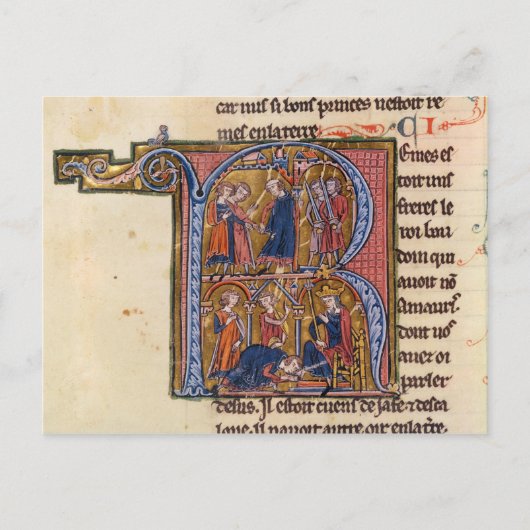 car nus si bons princes nestoit re
mes en la terre. CI
R Emes es
toit uns
freres le
roi bau
doin qui
auoit nō
Amaurꝭ.
Dont uoˢ
auez oi
parler
desus. Il estoit cuens de iafe ⁊ desca
lone. Il nauoit autre oir en la tr̄re.